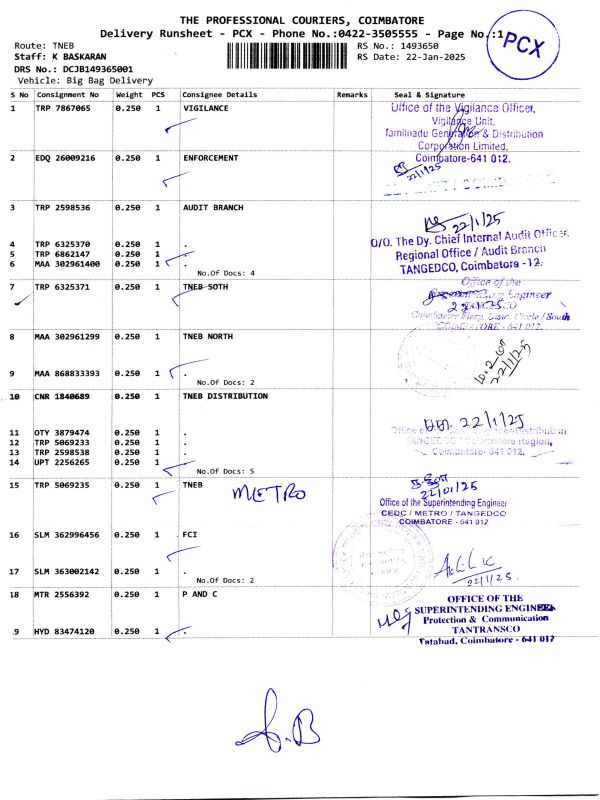 THE PROFESSIONAL COURIERS, COIMBATORE
Delivery Runsheet - PCX - Phone No.:0422-3505555 - Page No.:1
PCX
Route: TNEB
RS No.: 1493650
Staff: K BASKARAN
RS Date: 22-Jan-2025
DRS No.: DCJB149365001
Vehicle: Big Bag Delivery
S No Consignment No Weight PCS Consignee Details Remarks Seal & Signature
1 TRP 7867065 0.250 1 VIGILANCE
Office of the Vigilance Officer,
Vigilance Unit,
Tamilnadu Generation & Distribution
Corporation Limited,
Coimbatore-641 012.
2 EDQ 26009216 0.250 1 ENFORCEMENT
22/1/25
3 TRP 2598536 0.250 1 AUDIT BRANCH
22/1/25
O/O. The Dy. Chief Internal Audit Officer,
Regional Office / Audit Branch
TANGEDCO, Coimbatore - 12.
4 TRP 6325370 0.250 1 .
5 TRP 6862147 0.250 1 .
6 MAA 302961400 0.250 1 .
No.Of Docs: 4
7 TRP 6325371 0.250 1 TNEB SOTH
Office of the
Engineer
Coimbatore Elecy. Distn. Circle / South
COIMBATORE - 641 012.
8 MAA 302961299 0.250 1 TNEB NORTH
22/1/25
9 MAA 868833393 0.250 1 .
No.Of Docs: 2
10 CNR 1840689 0.250 1 TNEB DISTRIBUTION
22/1/25
TANGEDCO / Coimbatore Region,
Coimbatore- 641 012.
11 OTY 3879474 0.250 1 .
12 TRP 5069233 0.250 1 .
13 TRP 2598538 0.250 1 .
14 UPT 2256265 0.250 1 .
No.Of Docs: 5
15 TRP 5069235 0.250 1 TNEB METRO
22/01/25
Office of the Superintending Engineer
CEDC / METRO / TANGEDCO
COIMBATORE - 641 012
16 SLM 362996456 0.250 1 FCI
17 SLM 363002142 0.250 1 .
22/1/25.
No.Of Docs: 2
18 MTR 2556392 0.250 1 P AND C
OFFICE OF THE
SUPERINTENDING ENGINEER
Protection & Communication
TANTRANSCO
Tatabad, Coimbatore - 641 012
.9 HYD 83474120 0.250 1 .